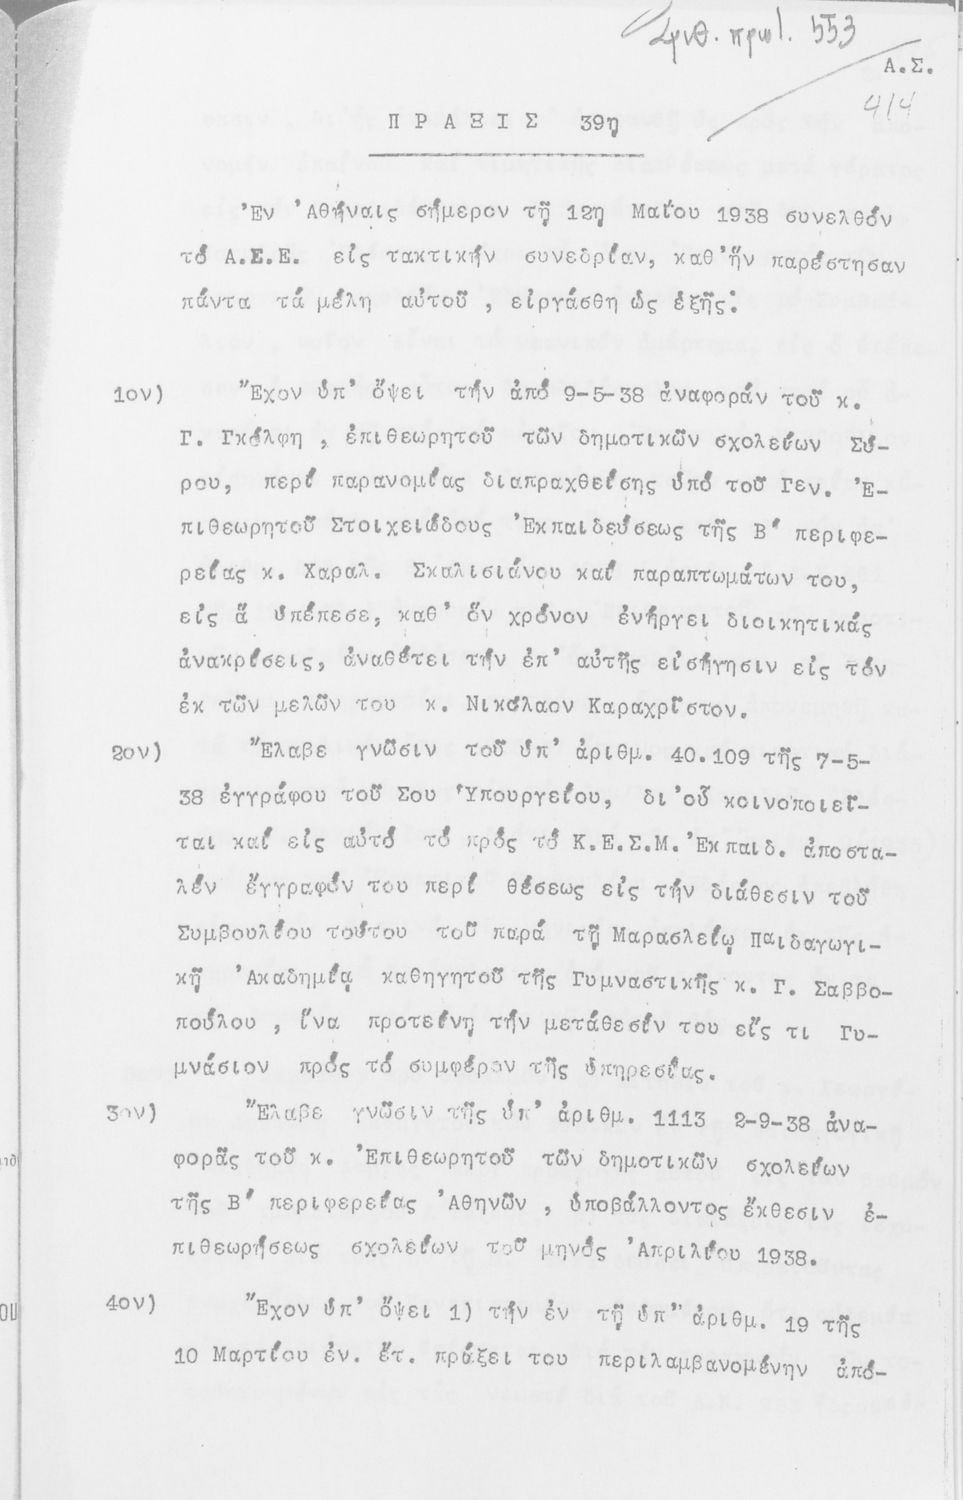 Αριθ. πρωτ. 553
Α.Σ.
414
ΠΡΑΞΙΣ 39η
Ἐν Ἀθήναις σήμερον τῇ 12ῃ Μαΐου 1938 συνελθόν
τό Α.Σ.Ε. εἰς τακτικήν συνεδρίαν, καθ'ἥν παρέστησαν
πάντα τά μέλη αὐτοῦ, εἰργάσθη ὡς ἑξῆς:
1ον) Ἔχον ὑπ' ὄψει τήν ἀπό 9-5-38 ἀναφοράν τοῦ κ.
Γ. Γκόλφη, ἐπιθεωρητοῦ τῶν δημοτικῶν σχολείων Σύ-
ρου, περί παρανομίας διαπραχθείσης ὑπό τοῦ Γεν. Ἐ-
πιθεωρητοῦ Στοιχειώδους Ἐκπαιδεύσεως τῆς Β' περιφε-
ρείας κ. Χαραλ. Σκαλισιάνου καί παραπτωμάτων του,
εἰς ἅ ὑπέπεσε, καθ' ὅν χρόνον ἐνήργει διοικητικάς
ἀνακρίσεις, ἀναθέτει τήν ἐπ' αὐτῆς εἰσήγησιν εἰς τόν
ἐκ τῶν μελῶν του κ. Νικόλαον Καραχρῖστον.
2ον) Ἔλαβε γνῶσιν τοῦ ὑπ' ἀριθμ. 40.109 τῆς 7-5-
38 ἐγγράφου τοῦ Σου Ὑπουργείου, δι'οὗ κοινοποιεῖ-
ται καί εἰς αὐτό τό πρός τό Κ.Ε.Σ.Μ. Ἐκπαιδ. ἀποστα-
λέν ἔγγραφόν του περί θέσεως εἰς τήν διάθεσιν τοῦ
Συμβουλίου τούτου τοῦ παρά τῇ Μαρασλείῳ Παιδαγωγι-
κῇ Ἀκαδημίᾳ καθηγητοῦ τῆς Γυμναστικῆς κ. Γ. Σαββο-
πούλου, ἵνα προτείνῃ τήν μετάθεσίν του εἴς τι Γυ-
μνάσιον πρός τό συμφέρον τῆς ὑπηρεσίας.
3ον) Ἔλαβε γνῶσιν τῆς ὑπ' ἀριθμ. 1113 2-9-38 ἀνα-
φορᾶς τοῦ κ. Ἐπιθεωρητοῦ τῶν δημοτικῶν σχολείων
τῆς Β' περιφερείας Ἀθηνῶν, ὑποβάλλοντος ἔκθεσιν ἐ-
πιθεωρήσεως σχολείων τοῦ μηνός Ἀπριλίου 1938.
4ον) Ἔχον ὑπ' ὄψει 1) τήν ἐν τῇ ὑπ' ἀριθμ. 19 τῆς
10 Μαρτίου ἐν. ἔτ. πράξει του περιλαμβανομένην ἀπό-